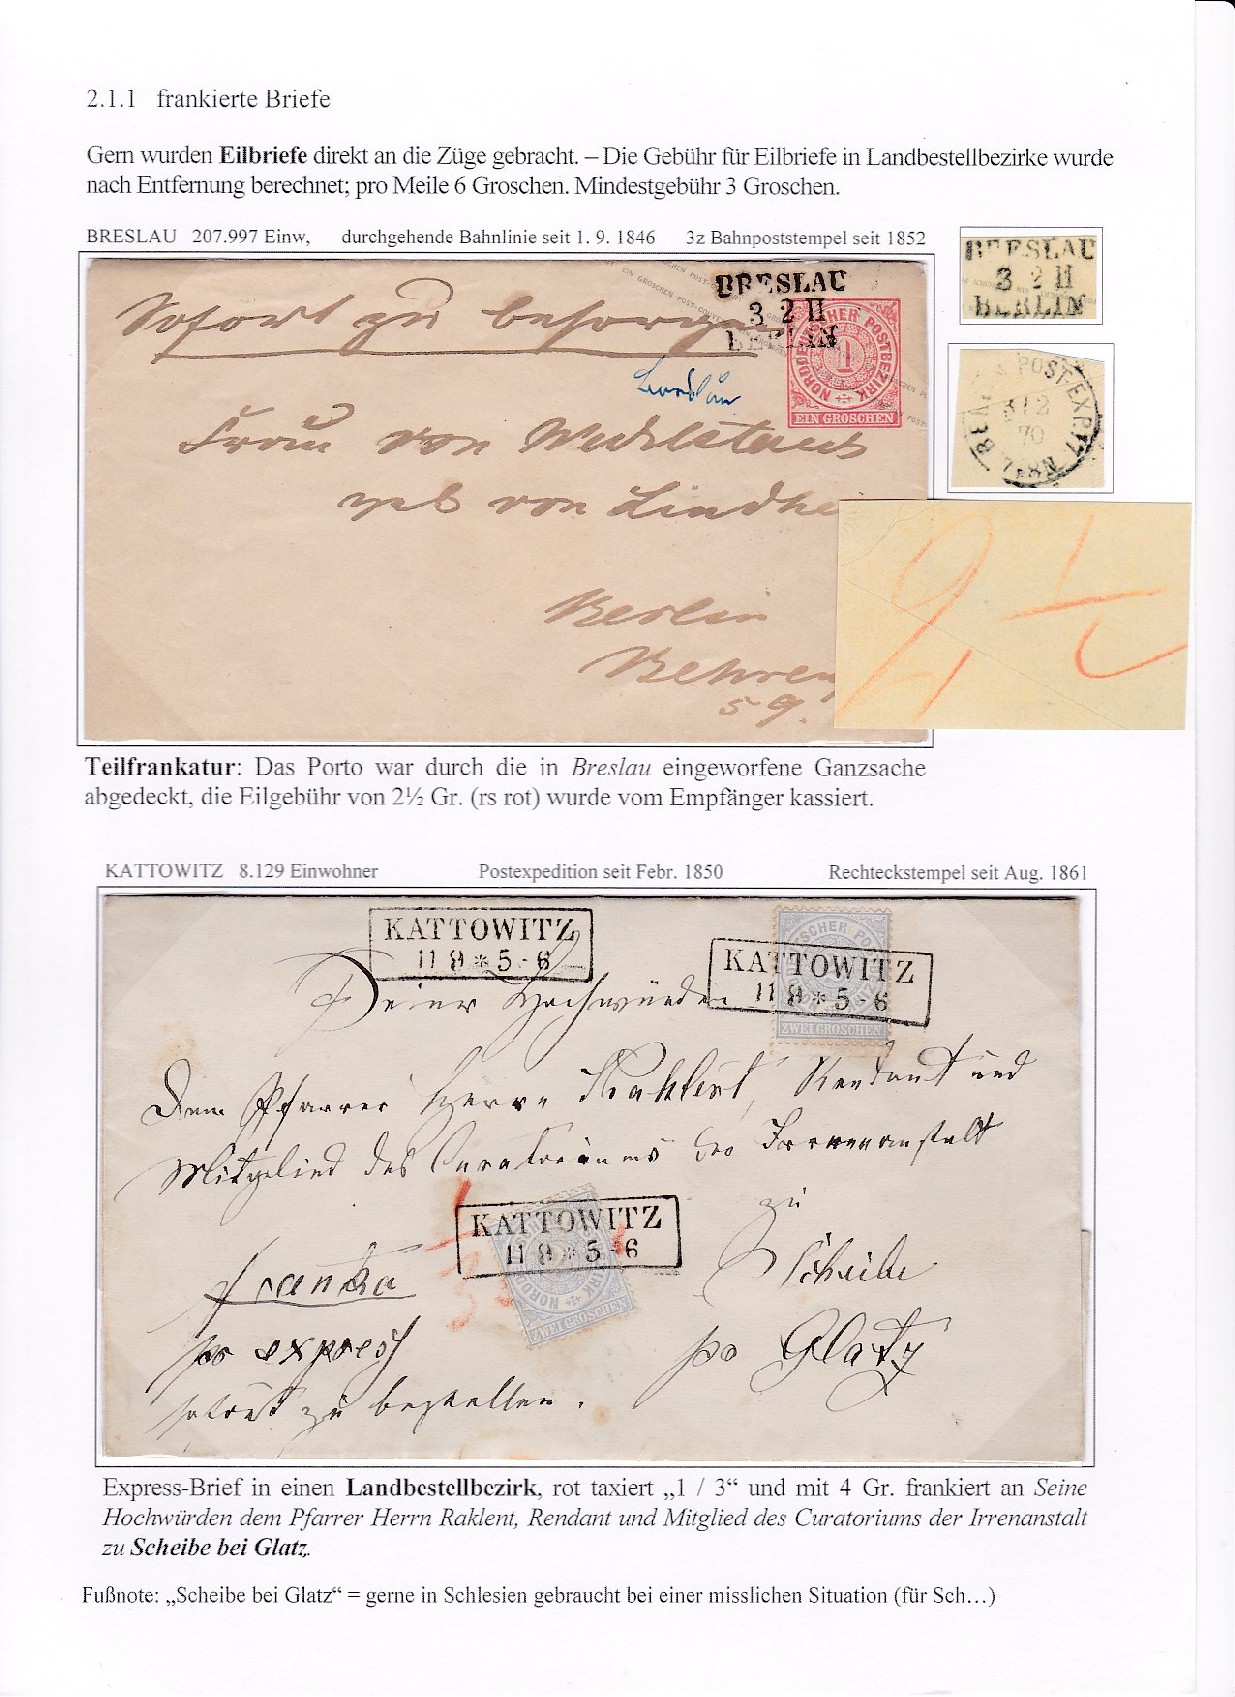 2.1.1 frankierte Briefe
Gern wurden Eilbriefe direkt an die Züge gebracht. – Die Gebühr für Eilbriefe in Landbestellbezirke wurde
nach Entfernung berechnet; pro Meile 6 Groschen. Mindestgebühr 3 Groschen.
BRESLAU 207.997 Einw, durchgehende Bahnlinie seit 1. 9. 1846 3z Bahnpoststempel seit 1852
BRESLAU
3 2 II
BERLIN
BRESLAU
3 2 II
BERLIN
Sofort zu besorgen
NORDDEUTSCHER POSTBEZIRK
1
EIN GROSCHEN
Breslau
POST-EXP.
3/2
70
7-8N
Frau von
geb von
Berlin
59.
2 1/2
Teilfrankatur: Das Porto war durch die in Breslau eingeworfene Ganzsache
abgedeckt, die Eilgebühr von 2½ Gr. (rs rot) wurde vom Empfänger kassiert.
KATTOWITZ 8.129 Einwohner Postexpedition seit Febr. 1850 Rechteckstempel seit Aug. 1861
KATTOWITZ
11 9 * 5-6
KATTOWITZ
11 9 * 5-6
ZWEI GROSCHEN
Seiner Hochwürden
Dem Pfarrer Herrn Rendant und
Mitglied des Curatoriums der Irrenanstalt
zu
KATTOWITZ
11 9 * 5-6
ZWEI GROSCHEN
1
3
Scheibe
franko
pr express
po Glatz
sofort zu bestellen.
Express-Brief in einen Landbestellbezirk, rot taxiert „1 / 3“ und mit 4 Gr. frankiert an Seine
Hochwürden dem Pfarrer Herrn Raklent, Rendant und Mitglied des Curatoriums der Irrenanstalt
zu Scheibe bei Glatz.
Fußnote: „Scheibe bei Glatz“ = gerne in Schlesien gebraucht bei einer misslichen Situation (für Sch…)